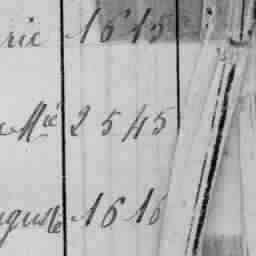 rie 1615
Mie 2545
uguste 1616